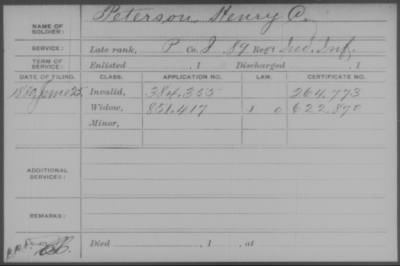 NAME OF SOLDIER: Peterson, Henry C.
SERVICE: Late rank, P Co. I, 89 Reg't Ind. Inf.
TERM OF SERVICE: Enlisted , 1 Discharged , 1
DATE OF FILING. CLASS. APPLICATION NO. LAW. CERTIFICATE NO.
1880 June 25 Invalid, 384.355 264.773
Widow, 851.417 622.870
Minor,
ADDITIONAL SERVICES:
REMARKS:
Died , 1 , at